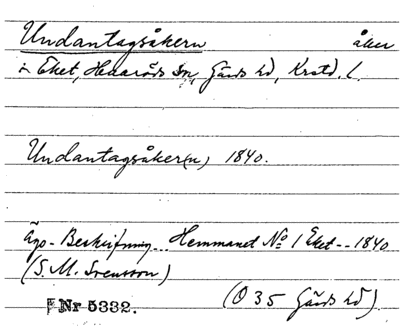 Undantagsåkern åker
i Eket, Huaröds sn, Gärds hd, Krstd. l.
Undantagsåker(n) 1840.
Ägo-Beskrifning.. Hemmanet No 1 Eket -- 1840
(S. M. Svensson)
(O 35 Gärds hd)
Nr 5332.